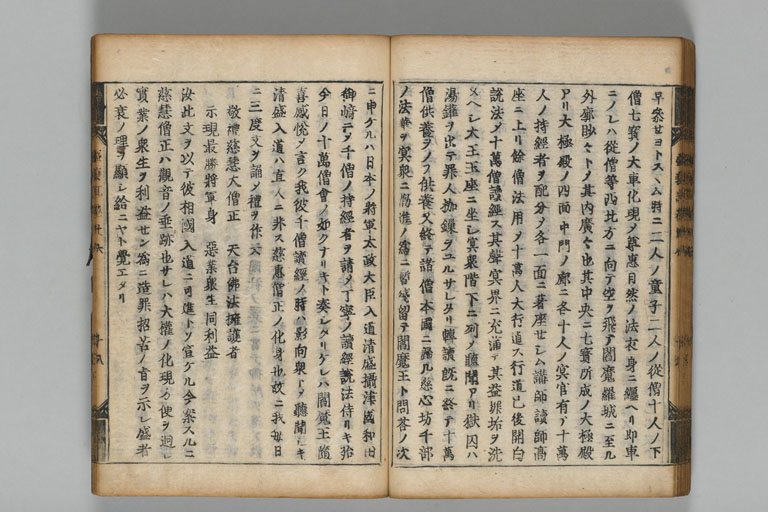 早參セヨトスヽム時ニ二人ノ童子二人ノ從僧十人ノ下
僧七寳ノ大車化現ノ尊惠自然ノ法衣身ニ纒ヘリ即車
ニノレハ從僧等西北方ニ向テ空ヲ飛テ閻魔羅城ニ至ル
外廓眇々トノ其内廣々也其中央ニ七寳所成ノ大極殿
アリ大極殿ノ四面中門ノ廊ニ各十人ノ冥官有テ十萬
人ノ持經者ヲ配分ノ各一面ニ著座セシム講師讀師高
座ニ上リ餘僧法用ノ十萬人大行道ス行道已後開白
說法ノ十萬僧讀經ス其聲冥界ニ充滿テ其益
湯鑊ヲ出テ罪人拗鏁ヲユルサレタリ轉讀既ニ終テ十萬
僧供養ヲノフ供養又終テ諸僧本國ニ歸ル慈心坊千部
ノ法華ヲ冥衆ニ勸進ノ爲ニ暫殘留テ閻魔王ト問荅ノ次
ニ申ケルハ日本ノ將軍太政大臣入道清盛攝津國和田
御﨑ニテ千僧ノ持經者ヲ請ノ丁寧ノ讀經說法侍リキ殆
今日ノ十萬僧會ノ如クナリキト奏シタリケレハ閻魔王隨
喜感悅ノ言ク我彼千僧讀經ノ時ハ影向與ノ聽聞シキ
清盛入道ハ直人ニ非ス慈惠僧正ノ化身也故ニ我毎日
ニ三度文ヲ誦ノ禮ヲ作
敬禮慈慧大僧正　天台佛法擁護者
示現最勝將軍身　惡業衆生同利益
汝此文ヲ以テ彼相國入道ニ可進トソ宣ケル今案スルニ
慈慧僧正ハ觀音ノ垂跡也サレハ大權ノ化現方便ヲ廻シ
實業ノ衆生ヲ利益セン爲ニ造罪招苦ノ旨ヲ示シ盛者
必衰ノ理ヲ顯シ給ニヤト覺エタリ